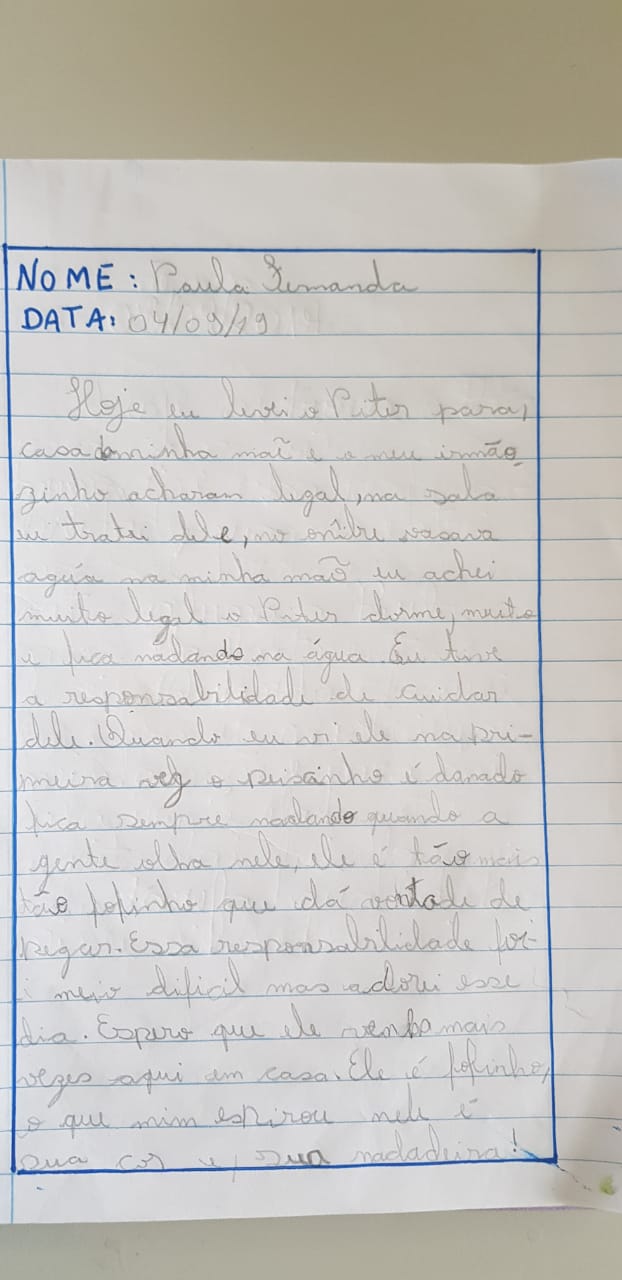 NOME: Paula Fernanda
DATA: 04/09/19
Hoje eu levei o Piter para,
casa da minha maẽ e o meu irmão
zinho acharam legal, na sala
eu tratei dele, no onîbu vasava
aguía na minha maõ eu achei
muito legal o Piter dorme, muito
e fica nadando na água. Eu tive
a responsabilidade de cuidar
dele. Quando eu vi ele na pri-
meira vez o peixinho é danado
fica sempre nadando quando a
gente olha nele, ele é tão mais
tão fofinho que dá vontade de
pegar. Essa responsabilidade foi-
i meio dificil mas adorei esse
dia. Espero que ele venha mais
vezes aqui em casa. Ele é fofinho,
o que mim espirou nele é
sua cor e, sua nadadeira!